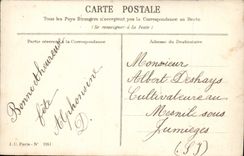 CARTE POSTALE
Tous les Pays Étrangers n'acceptent pas la Correspondance au Recto.
(Se renseigner à la Poste)
Partie réservée à la Correspondance
Adresse du Destinataire
Bonne & heureuse
fête
Alphonsine
D.
Monsieur
Albert Deshays
Cultivateur au
Mesnil sous
Jumièges
(S I)
J. C. Paris